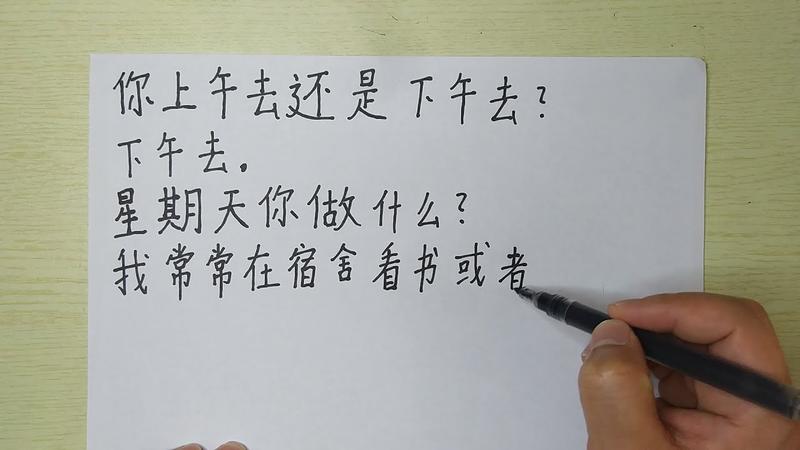 你上午去还是下午去?
下午去.
星期天你做什么?
我常常在宿舍看书或者